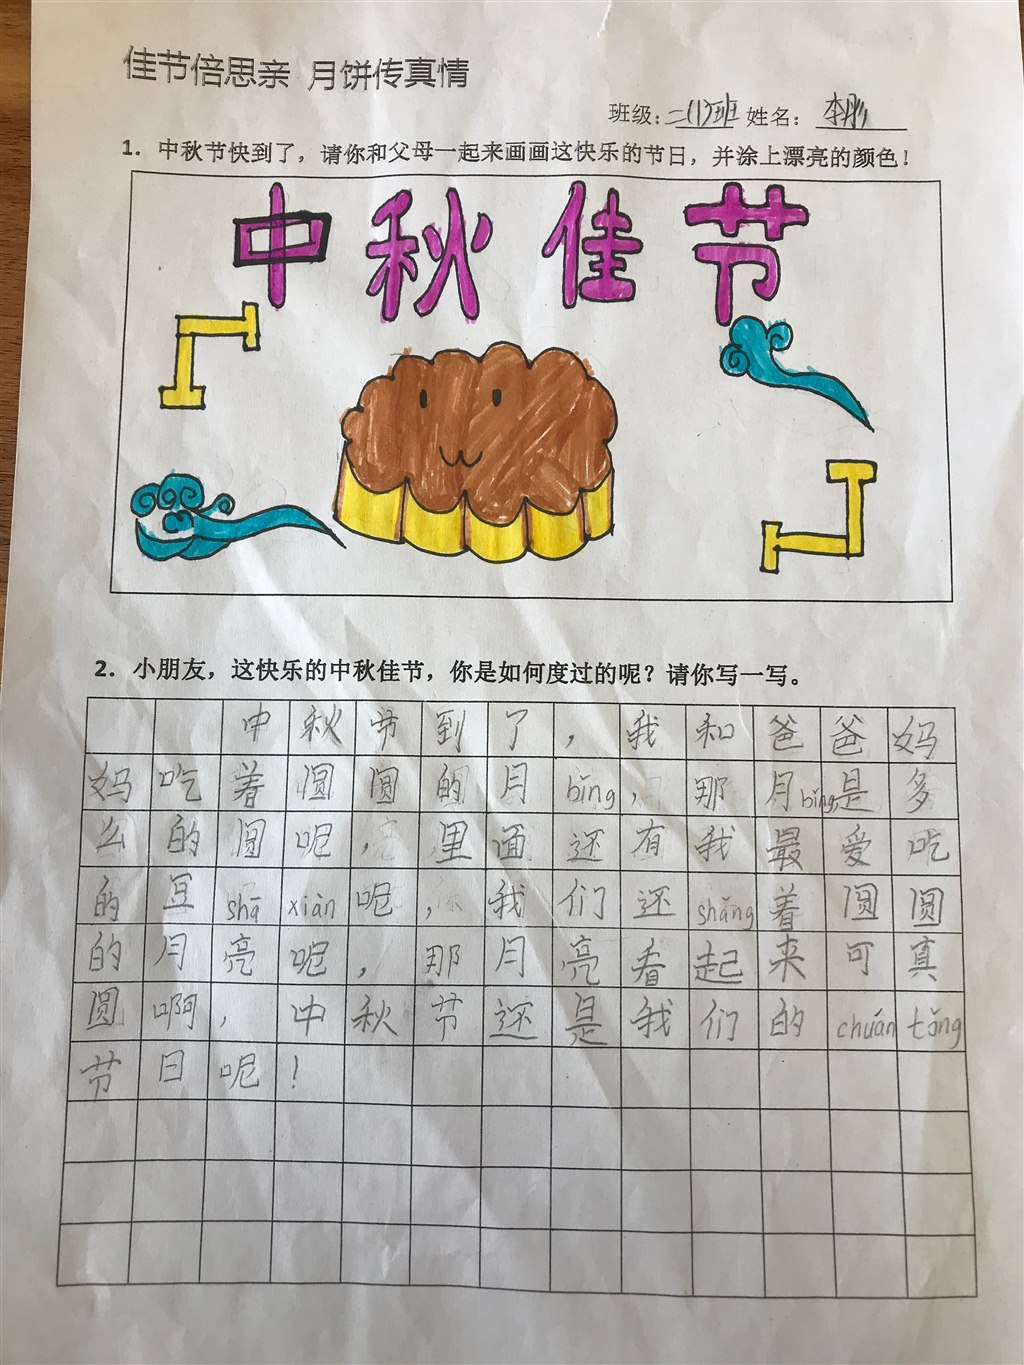 佳节倍思亲 月饼传真情
班级：二(1)班 姓名：李彤
1. 中秋节快到了，请你和父母一起来画画这快乐的节日，并涂上漂亮的颜色！
中秋佳节
2. 小朋友，这快乐的中秋佳节，你是如何度过的呢？请你写一写。
中秋节到了，我和爸爸妈
妈吃着圆圆的月bǐng，那月bǐng是多
么的圆呢，里面还有我最爱吃
的豆shā xiàn呢，我们还shǎng着圆圆
的月亮呢，那月亮看起来可真
圆啊，中秋节还是我们的chuán tǒng
节日呢！